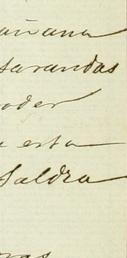 añana
tarandas
oder
a esta
Saldra